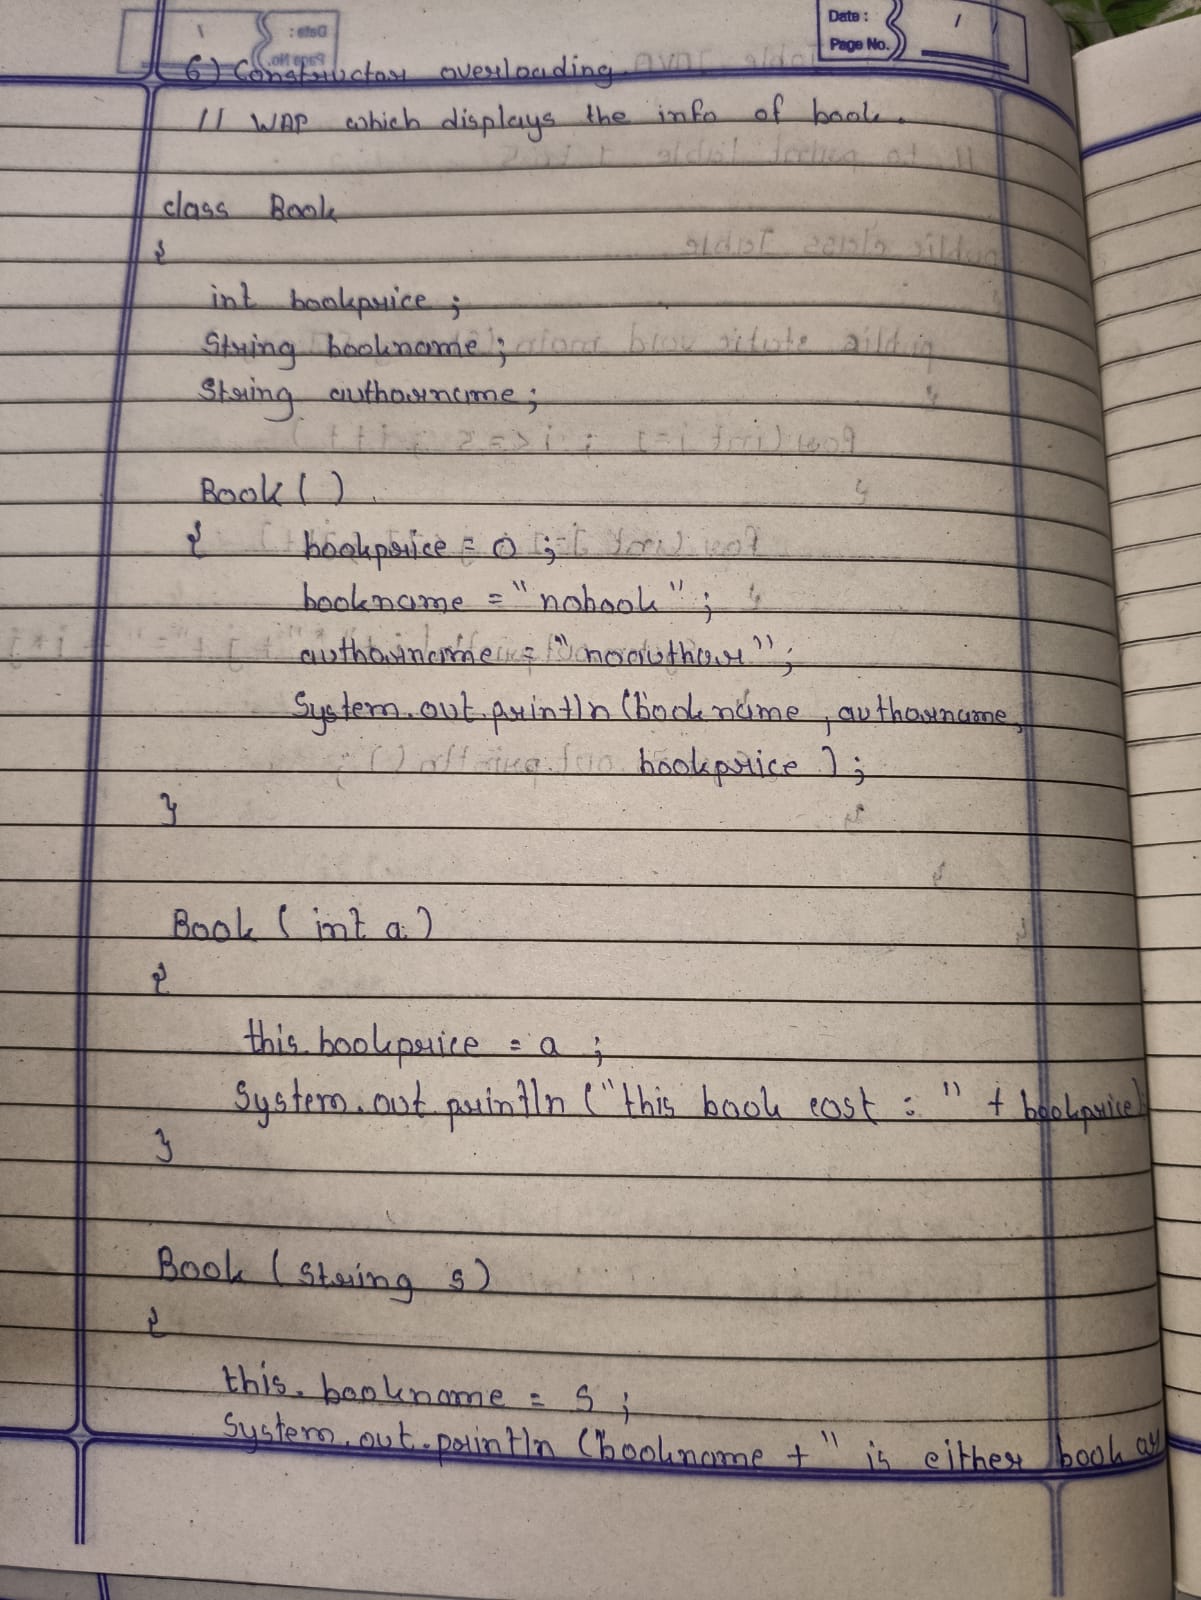 Date : / /
Page No.
6) Constructor overloading.
// WAP which displays the info of book.
class Book
{
int bookprice ;
String bookname ;
String authorname ;
Book ( )
{ bookprice = 0 ;
bookname = "nobook" ;
authorname = "noauthor" ;
System.out.println (bookname , authorname,
bookprice ) ;
}
Book ( int a )
{
this.bookprice = a ;
System.out.println ("this book cost : " + bookprice)
}
Book ( string s )
{
this.bookname = s ;
System.out.println (bookname + " is either book or